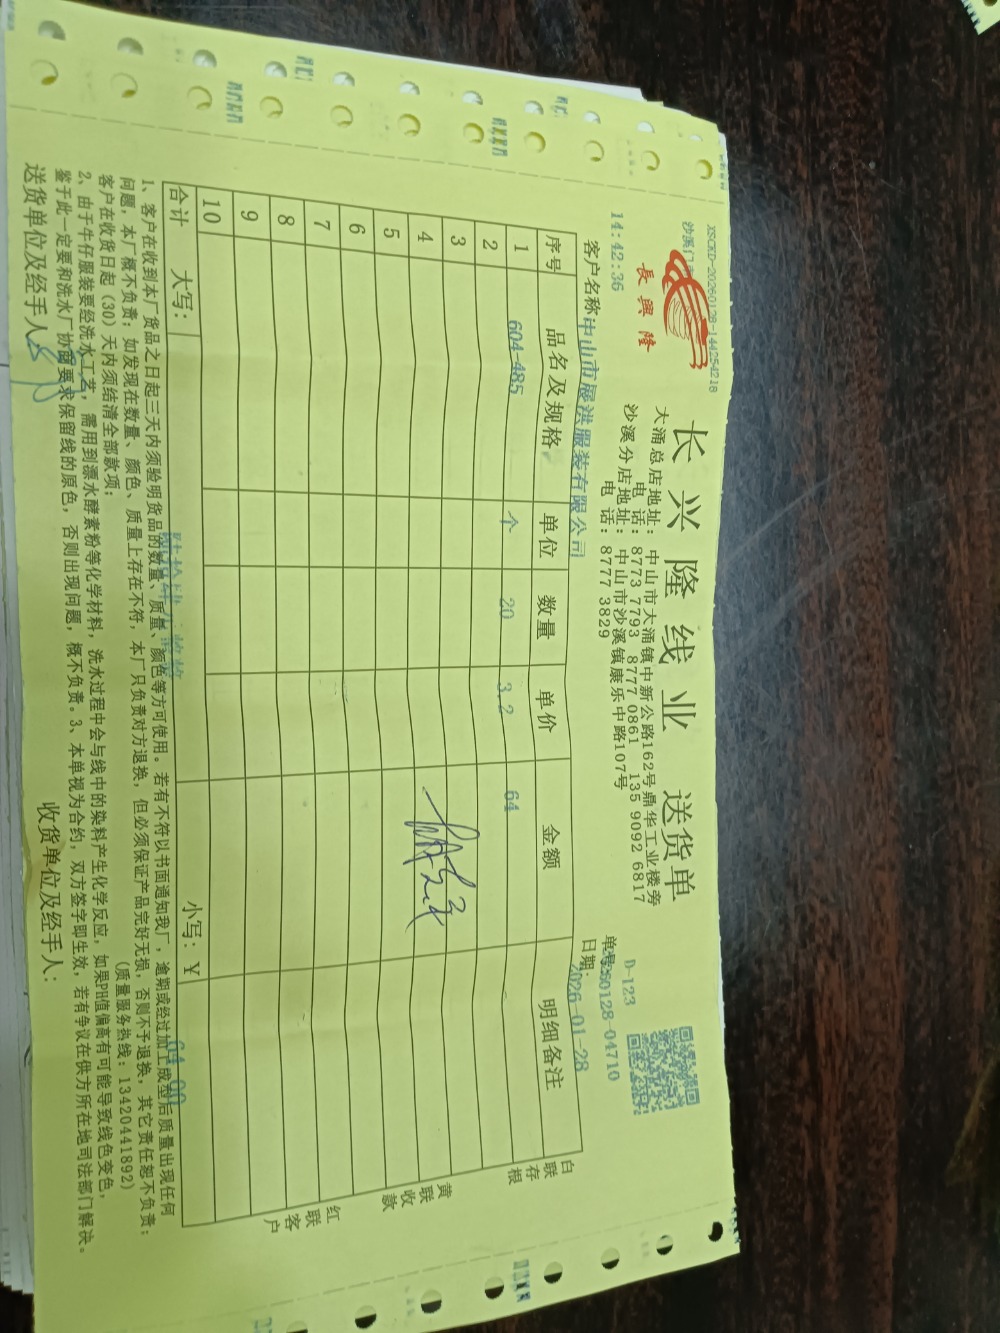 XSCKD-20260128-144254218
沙溪门
長興隆
长兴隆线业 送货单
大涌总店地址：中山市大涌镇中新公路162号鼎华工业楼旁
电话：8773 7793 8777 0861 135 9092 6817
沙溪分店地址：中山市沙溪镇康乐中路107号
电话：8777 3829
D-123
14:42:36
单号: 60128-04710
客户名称 中山市展洪服装有限公司
日期: 2026-01-28
序号 品名及规格 单位 数量 单价 金额 明细备注
1 604-485 个 20 3.2 64
2
3
4
5
6
7
8
9
10
合计 大写： 陆拾肆 小写：￥ 64.00
白联存根
黄联收款
红联客户
1、客户在收到本厂货品之日起三天内须验明货品的数量、质量、颜色等方可使用。若有不符以书面通知我厂，逾期或经过加工成型后质量出现任何
问题，本厂概不负责；如发现在数量、颜色、质量上存在不符，本厂只负责对方退换，但必须保证产品完好无损，否则不予退换，其它责任恕不负责；
客户在收货日起（30）天内须结清全部款项； （质量服务热线：13420441892）
2、由于牛仔服装要经洗水工艺，需用到漂水酵素粉等化学材料，洗水过程中会与线中的染料产生化学反应，如果PH值偏高有可能导致线色变色，
鉴于此一定要和洗水厂协商要求保留线的原色，否则出现问题，概不负责。3、本单视为合约，双方签字即生效，若有争议在供方所在地司法部门解决。
送货单位及经手人： 收货单位及经手人：